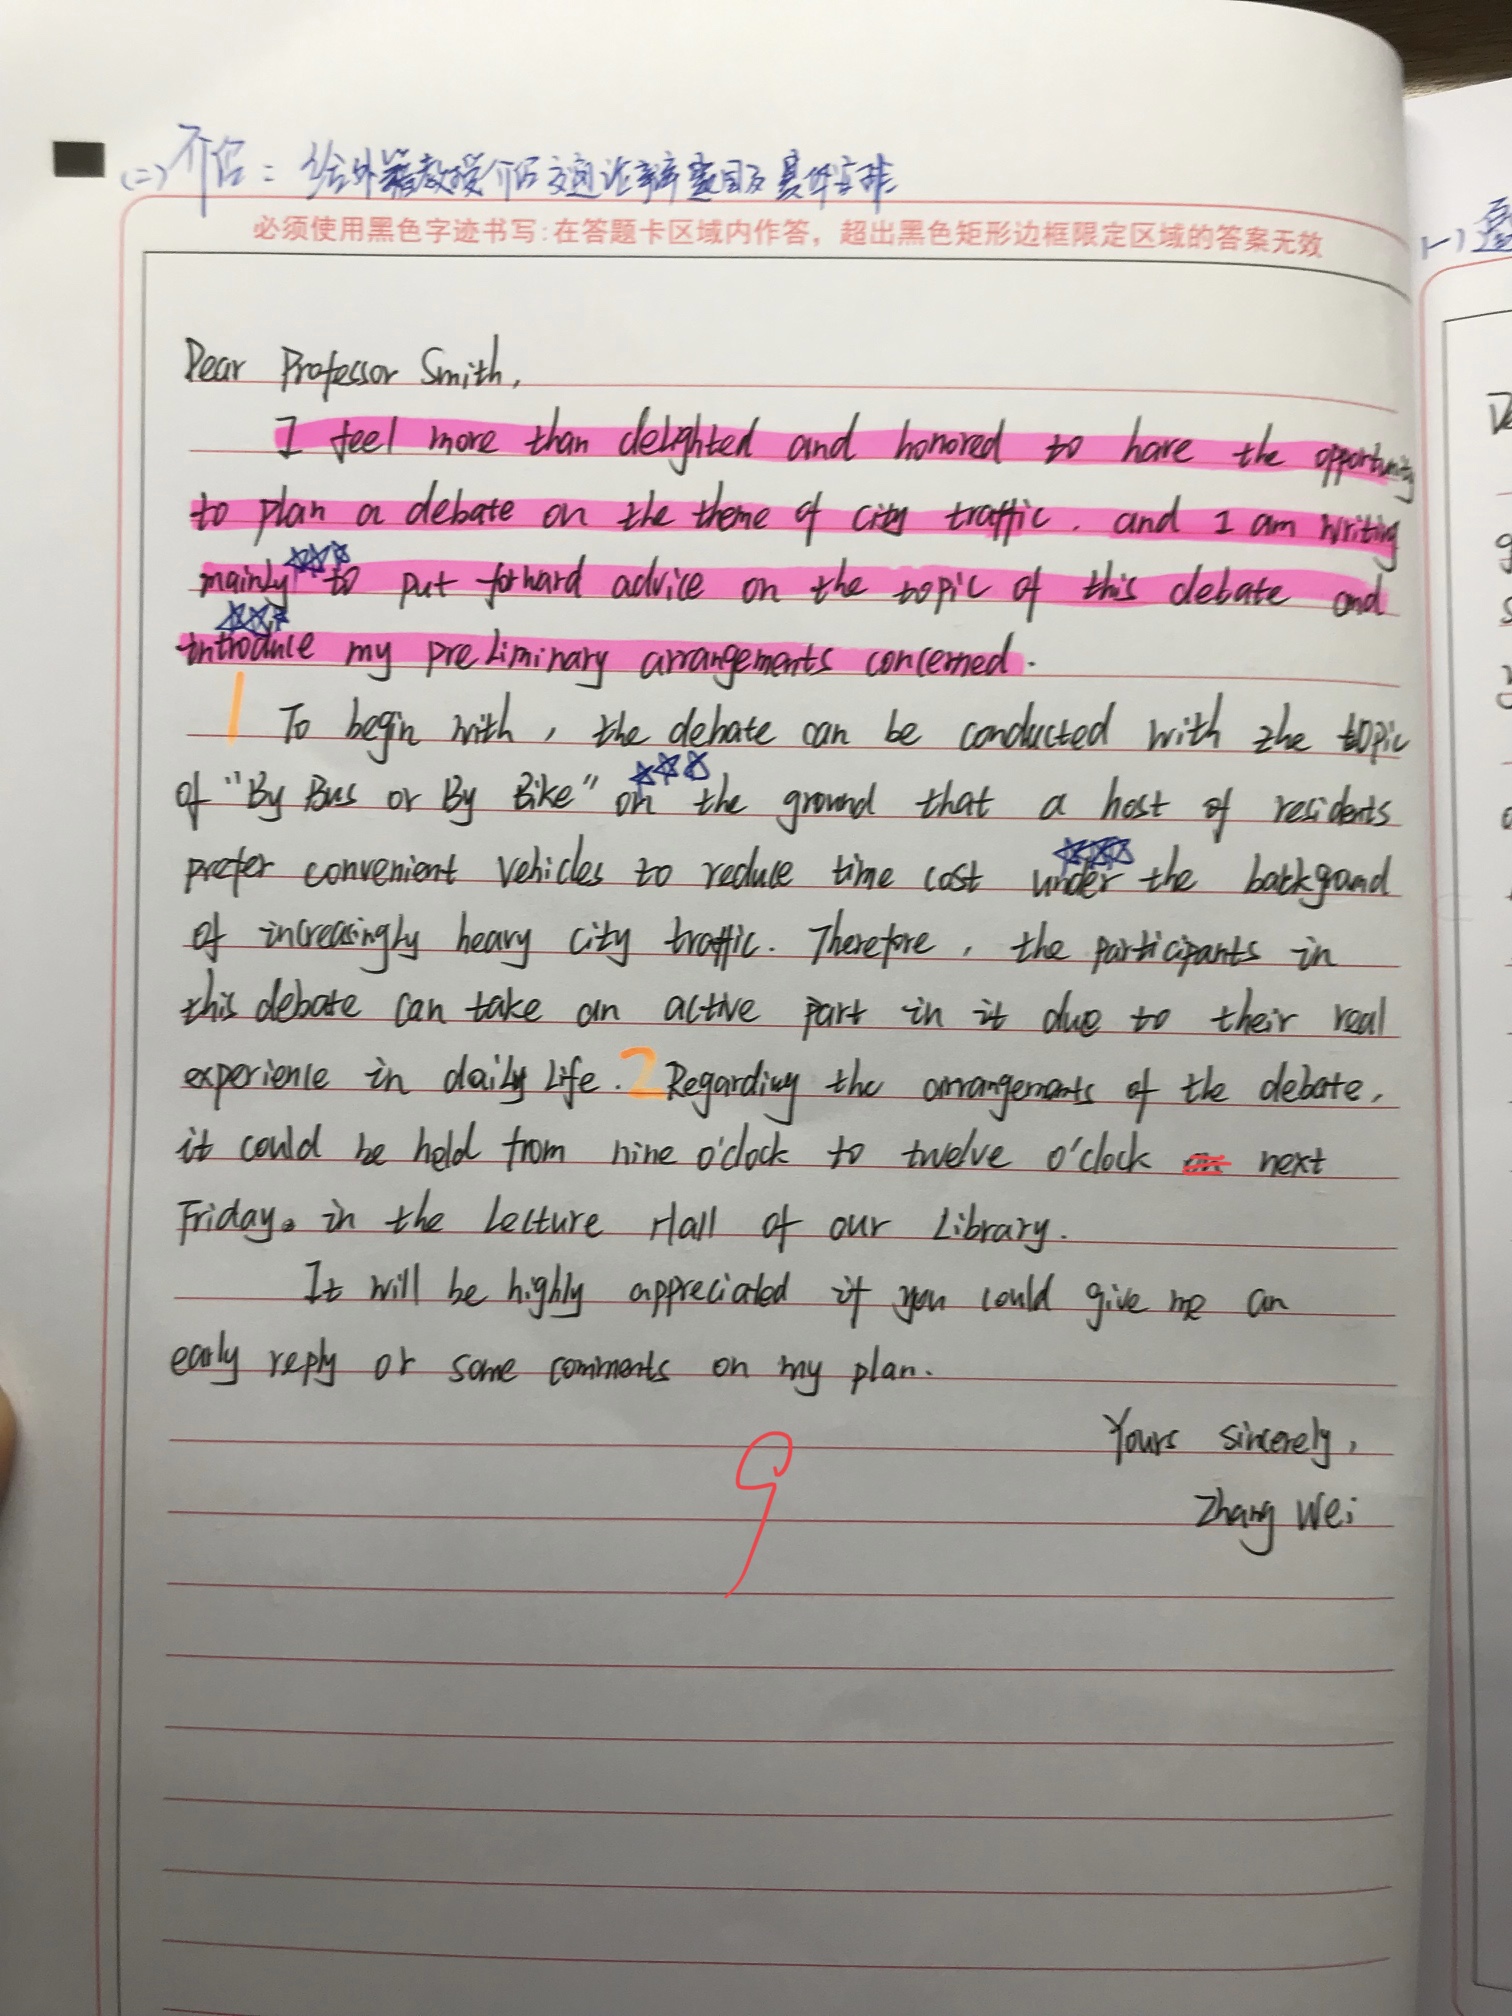 (二)介绍：给外籍教授介绍交通论辩赛题及具体安排
必须使用黑色字迹书写:在答题卡区域内作答，超出黑色矩形边框限定区域的答案无效
Dear Professor Smith,
I feel more than delighted and honored to have the opportunity
to plan a debate on the theme of city traffic. and I am writing
mainly to put forward advice on the topic of this debate and
introduce my preliminary arrangements concerned.
1 To begin with, the debate can be conducted with the topic
of "By Bus or By Bike" on the ground that a host of residents
prefer convenient vehicles to reduce time cost under the backgound
of increasingly heavy city traffic. Therefore, the participants in
this debate can take an active part in it due to their real
experience in daily life. 2 Regarding the arrangements of the debate,
it could be held from nine o'clock to twelve o'clock next
Friday. in the Lecture Hall of our Library.
It will be highly appreciated if you could give me an
early reply or some comments on my plan.
Yours sincerely,
Zhang Wei
9
(一)